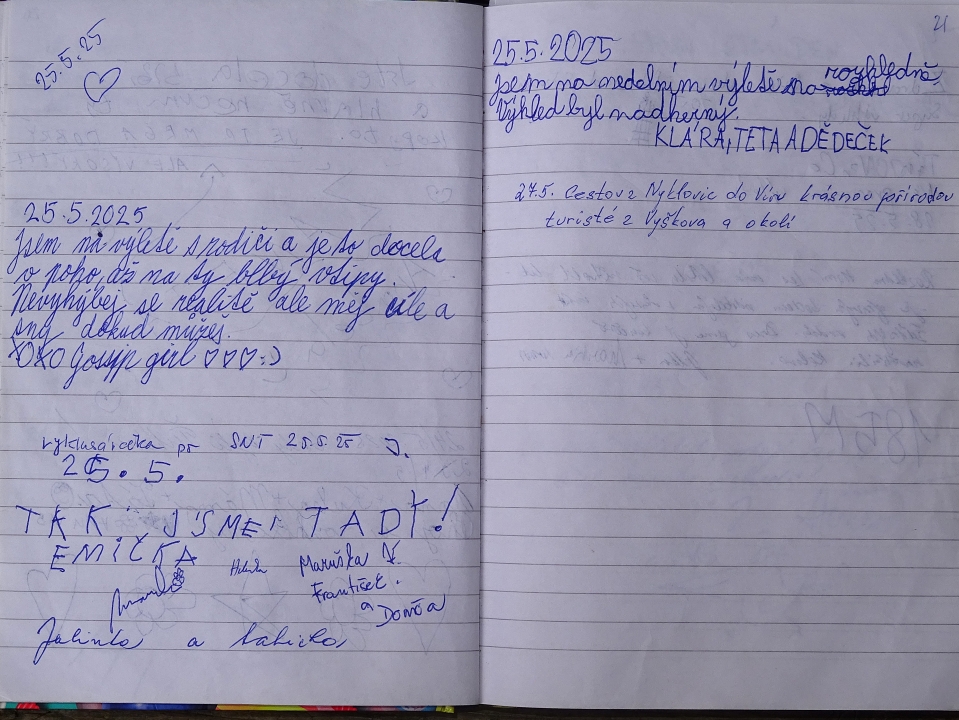 25.5.25
25.5.2025
Jsem na výletě s rodiči a je to docela
v poho, až na ty blbý vtipy.
Nevyhýbej se realitě ale měj cíle a
sny dokud můžeš.
OXO Gossip girl ♡♡♡:)
vyklusávačka po SNT 25.5.25 J.
25. 5.
TAK JSME TADY!
EMIČKA
Maruška V.
František.
a Domča
Julinka a babička
21
25.5.2025
Jsem na nedělním výletě na rozhledně,
Výhled byl nádherný.
KLÁRA, TETA A DĚDEČEK
27.5. Cestou z Nyklovic do Víru krásnou přírodou
turisté z Vyškova a okolí